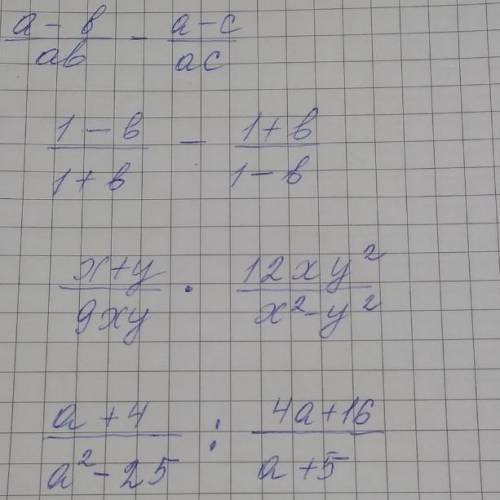 (a - b)/(ab) - (a - c)/(ac)
(1 - b)/(1 + b) - (1 + b)/(1 - b)
(x + y)/(9xy) · (12xy²)/(x² - y²)
(a + 4)/(a² - 25) : (4a + 16)/(a + 5)